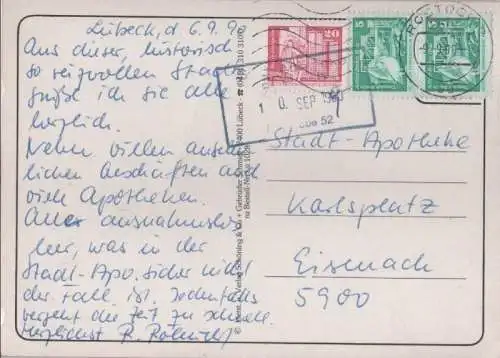 Lübeck, d 6.9.90
Aus dieser, historisch
so reizvollen Stadt
grüße ich sie alle
herzlich.
Neben vielen anseh
lichen Geschäften und
viele Apotheken.
Aber ausnahmslos
leer, was in der
Stadt-Apo. sicher nicht
der Fall ist. Jedenfalls
vergeht die Zeit zu schnell.
Herzlichst R.
Schöning & Co + Gebrüder Schmidt
2400 Lübeck
20
5
5
ROSTOCK
10. SEP. 1990
52
Stadt-Apotheke
Karlsplatz
Eisenach
5900